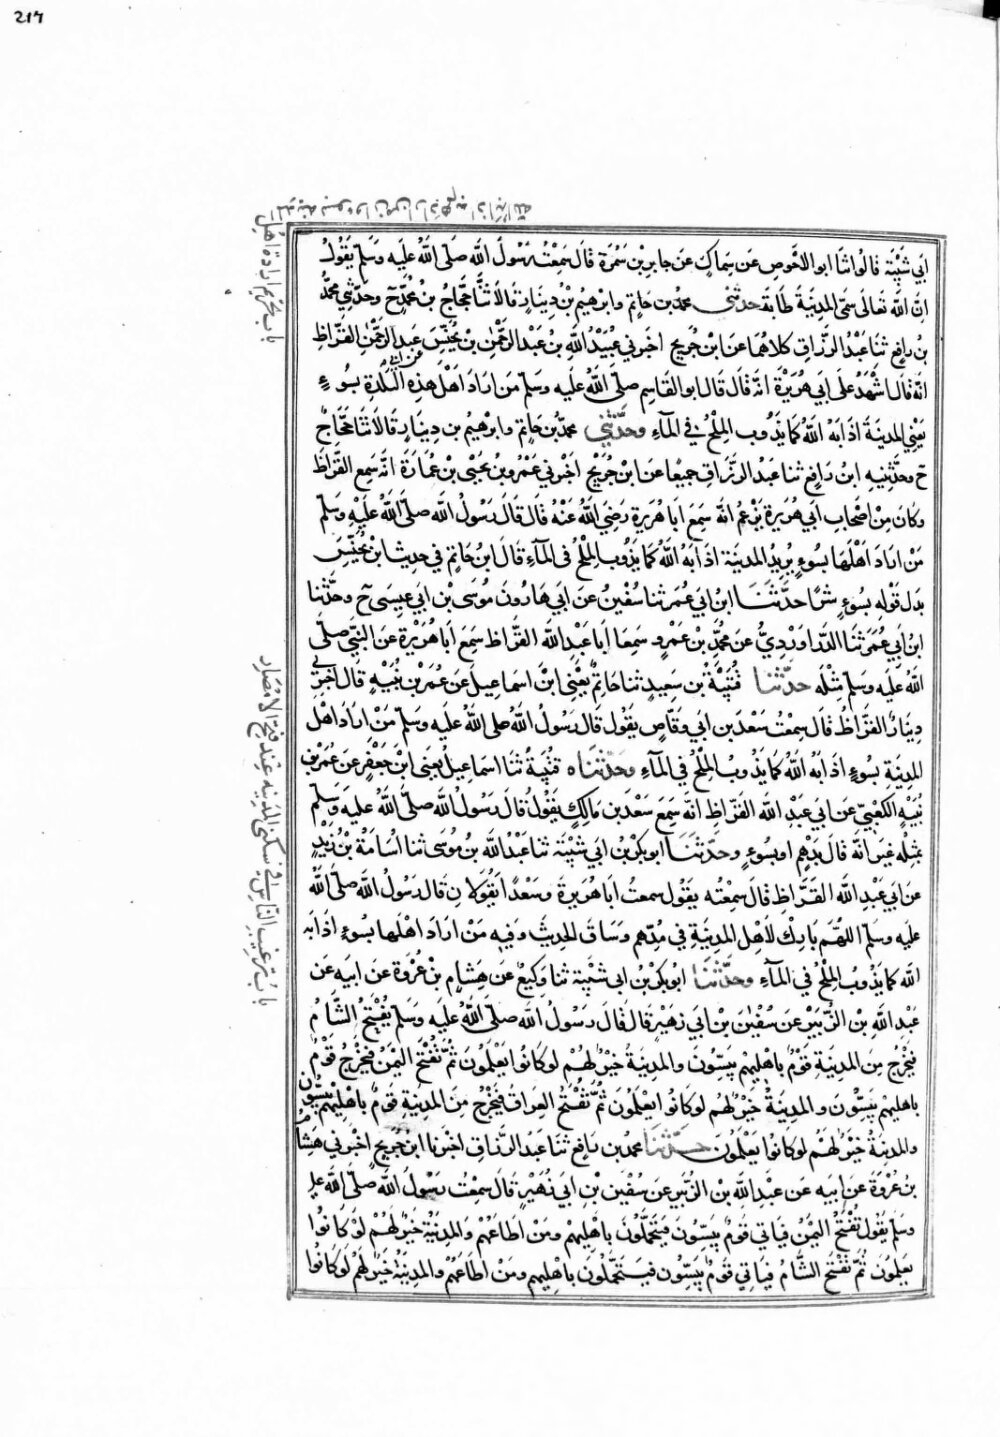 217
باب تحريم ارادة اهل المدينة بسوء وان من ارادهم به اذابه الله
ابي شَيْبَة قالوا ثنا ابو الاحوص عن سِماكٍ عن جابر بن سَمُرة قال سمعتُ رَسُولَ الله صَلّى اللهُ عليه وسَلّم يقُولُ
انّ الله تعالى سمّى المدينةَ طَابةَ حدثنى محمد بن حَاتم وابرهيم بن دينار قالا ثنا حجّاجُ بن محمّدٍ ح وحدّثني محمّدُ
بن رافِع ثنا عَبْدُ الرّزّاقِ كلاهُما عن ابن جُريجٍ اخبرني عُبَيْدُ اللهِ بن عبْد الرّحمٰنِ بن يُحَنّسَ عن ابي عَبدِ الله القَرّاظِ
انّه قال اشْهَدُ على ابي هُريْرةَ انّه قال قال ابو القَاسِم صلّى اللهُ عليه وسلم مَن ارَادَ اهْلَ هذِه البَلْدةِ بسُوءٍ
يَعْنِي المدينةَ اذَابَهُ اللهُ كَما يَذُوبُ المِلْحُ في المَآءِ وحَدَّثَنِي محمّد بن حَاتِم وابرْهِيمُ بن دِينَارٍ قَالَا ثَنا حَجّاجٌ
ح وحدّثنِيهِ ابنُ رَافِعٍ ثنا عَبْدُ الرزّاقِ جَميْعًا عن ابن جُريْجٍ اخْبرني عَمْرُو بن يَحْيَى بْن عُمَارَةَ انّه سَمِع القَرّاظَ
وكانَ مِنْ اصْحَابِ ابي هُريرةَ يَزْعُم انّه سَمِعَ اباهُريرةَ رضيَ اللهُ عَنْهُ قَالَ قَالَ رَسُولُ اللهِ صَلّى اللهُ عَلَيْهِ وسَلّمَ
مَنْ ارَادَ اهْلَهَا بسُوءٍ يُريْدُ المدينة اذَابَهُ اللهُ كَما يَذُوبُ المِلْحُ في المَآءِ قَالَ ابنُ حَاتِمٍ في حديثِ ابْنِ يُحَنّسَ
بدَلَ قَوْلِهِ بسُوءٍ شَرًّا حدَّثَنَا ابنُ ابي عُمَرَ ثنا سُفْيٰنُ عن ابي هَارُونَ مُوسَى بْنِ ابي عيسَى ح وحدّثنا
ابنُ ابي عُمَرَ ثنَا الدّراوَرْدِيُّ عن محمّدِ بن عَمْرٍو سَمِعَا ابا عَبْدِ الله القَرّاظَ سَمِعَ ابَاهُرَيْرةَ عن النّبيِّ صَلّى
اللهُ عليْه وسلّمَ بمِثْلِه حدّثنا قُتَيْبَةُ بن سَعِيدٍ ثنا حَاتِمٌ يَعْنِى ابْنَ اسماعيلَ عن عُمَرَ بْنِ نُبَيْهٍ قَال اخبرني
دِينارٌ القرّاظُ قال سَمِعْتُ سَعْدَ بن ابي وقّاصٍ يقُولُ قالَ رَسُولُ اللهِ صلى اللهُ عليْهِ وسلّمَ مَنْ ارَادَ اهْلَ
المدِينةِ بسُوءٍ اذَابَهُ اللهُ كَما يَذُوبُ المِلْحُ في المَآءِ وَحدّثنَاه قتَيْبَةُ ثَنَا اسماعيلُ يَعْنِى ابنَ جَعْفَرٍ عن عُمرَ بن
نُبَيْهٍ الكَعْبِيِّ عن ابي عَبْدِ اللهِ القرّاظِ انّه سَمِعَ سَعْدَ بن مَالِكٍ يَقُولُ قالَ رَسُولُ اللهِ صلّى اللهُ عليه وسلّم
بمِثْلِه غيرَ انّه قَالَ بدَهْمٍ اوبسُوءٍ وحدّثنَا ابوبكْرِ بن ابي شَيْبَةَ ثنا عُبَيْدُ الله بن مُوسَى ثنا اُسامَةُ بن زَيْدٍ
عن ابي عَبْدِ اللهِ القَرّاظِ قالَ سَمِعْتُه يَقُول سمعتُ اباهُريرةَ وسَعْدًا يَقُولَانِ قَالَ رَسُولُ اللهِ صَلّى اللهُ
عليه وسلّمَ اللّهُمّ بَارِكْ لأَهْلِ المدينةِ في مُدّهِم وسَاقَ الحديثَ وفيه مَنْ ارَادَ اهْلَهَا بسُوءٍ اذَابَه
الله كَما يَذُوبُ المِلْحُ في المَآءِ وحدّثنَا ابُوبكْرِ بن ابي شَيْبَةَ ثنا وَكِيعٌ عن هِشَامِ بن عُرْوَةَ عن ابيه عن
عَبْدِ اللهِ بن الزُّبَيْرِ عن سُفْيٰنَ بن ابي زهَيْرٍ قالَ قَالَ رَسُولُ الله صلّى اللهُ عليه وسلّمَ يُفْتَحُ الشّامُ
فيَخْرُجُ مِنَ المدينةِ قَوْمٌ باهْليهِمْ يَبُسُّونَ والمدينةُ خيرٌ لهُمْ لوكَانُوا يَعْلَمُونَ ثُمّ تُفْتَحُ اليَمَنُ فيَخْرُجُ قَوْمٌ
باهليهِمْ يَبُسُّونَ والمدينةُ خَيْرٌ لهُم لوكَانُوا يَعْلَمُونَ ثُمّ تُفْتَحُ العِراقُ فيَخْرُجُ مِنَ المدينةِ قومٌ باهْلِيهِمْ يَبُسُّونَ
والمدينةُ خيْرٌ لَهُم لوكَانُوا يَعْلَمُونَ حَدّثنَا محمد بن رَافِعٍ ثنا عَبْدُ الرّزّاقِ اخبرنا ابنُ جُرَيجٍ اخْبَرني هِشَامُ
بن عُرْوَةَ عن ابيهِ عن عَبْدِ اللهِ بن الزُّبَيرِ عن سُفْيٰنَ بنِ ابي زُهَيْرٍ قَالَ سَمِعْتُ رَسُولَ اللهِ صلّى اللهُ عليه
وسلّم يَقُولُ تُفْتَحُ اليَمَنُ فيَاتي قَومٌ يَبُسّونَ فيَتَحَمّلُونَ باهْلِيهِمْ ومَن اطَاعَهُمْ والمدِينَةُ خَيْرٌ لَهُمْ لوْكَانُوا
يَعْلَمُونَ ثُمّ تُفْتَحُ الشّامُ فيَاتي قَوْمٌ يَبُسُّون فيَتَحَمّلُونَ باهْلِيهِم ومَنْ اطَاعَهُمْ والمدِينَةُ خَيْرٌ لهُمْ لوكَانُوا
باب ترغيب الناس في سكنى المدينه عند فتح الامصار